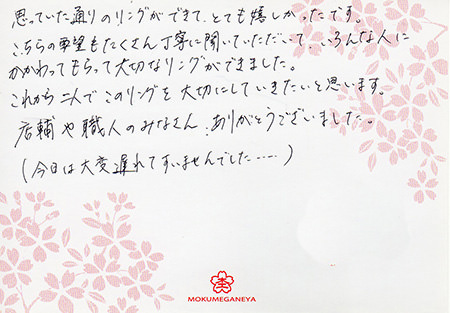 思っていた通りのリングができて、とても嬉しかったです。
こちらの希望もたくさん丁寧に聞いていただいて、いろんな人に
かかわってもらって大切なリングができました。
これから二人でこのリングを大切にしていきたいと思います。
店舗や職人のみなさん、ありがとうございました。
(今日は大変遅れてすいませんでした……)
MOKUMEGANEYA